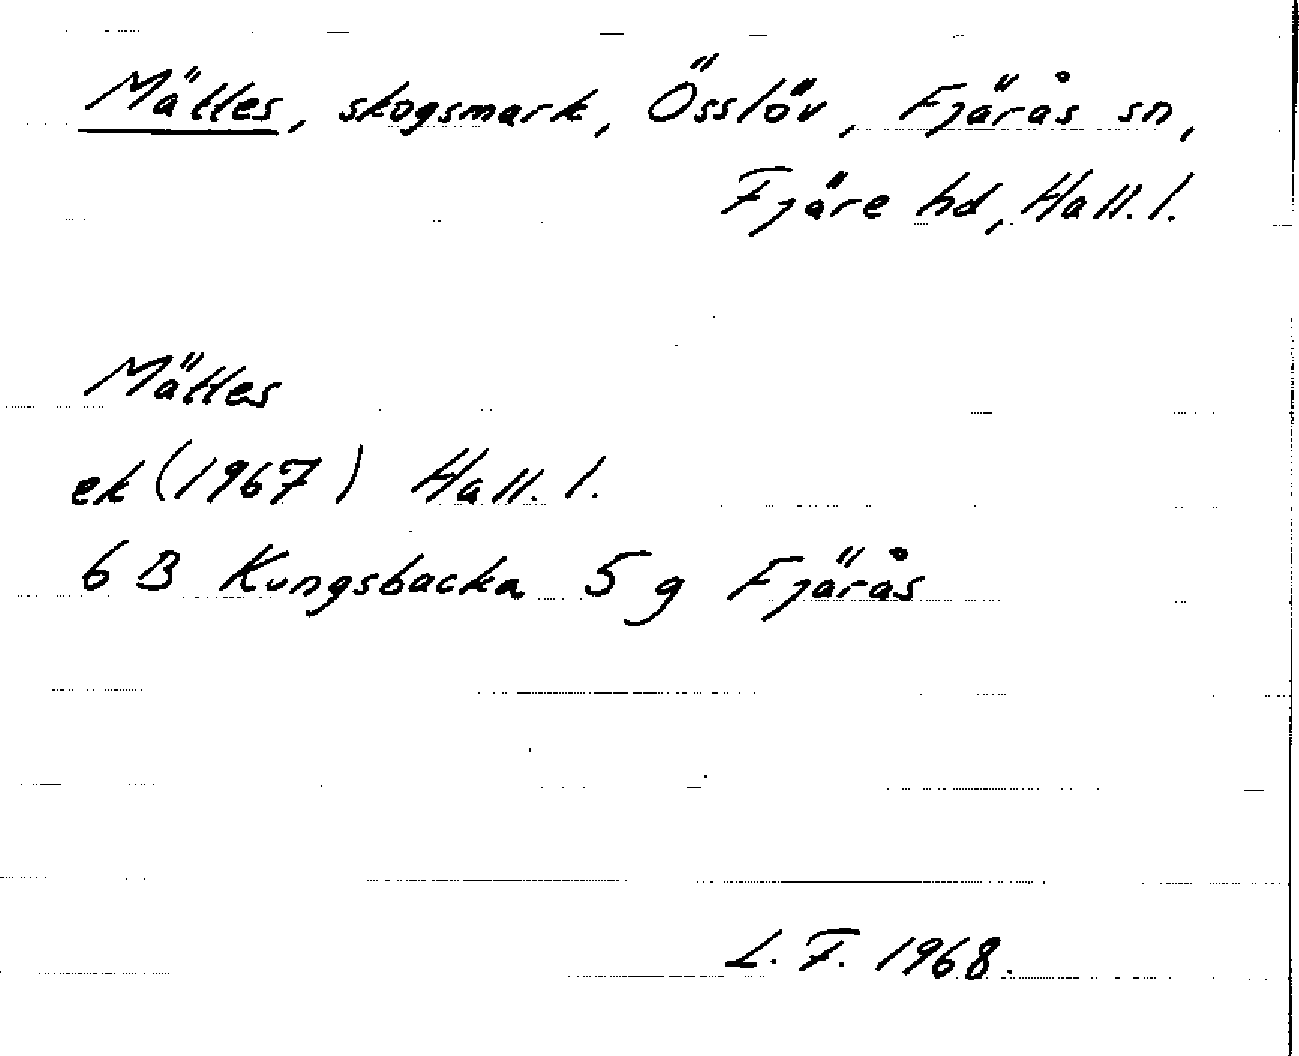 Mättes, skogsmark, Össlöv, Fjärås sn,
Fjäre hd, Hall. l.
Mättes
ek (1967) Hall. l.
6 B Kungsbacka 5 g Fjärås
L. F. 1968.